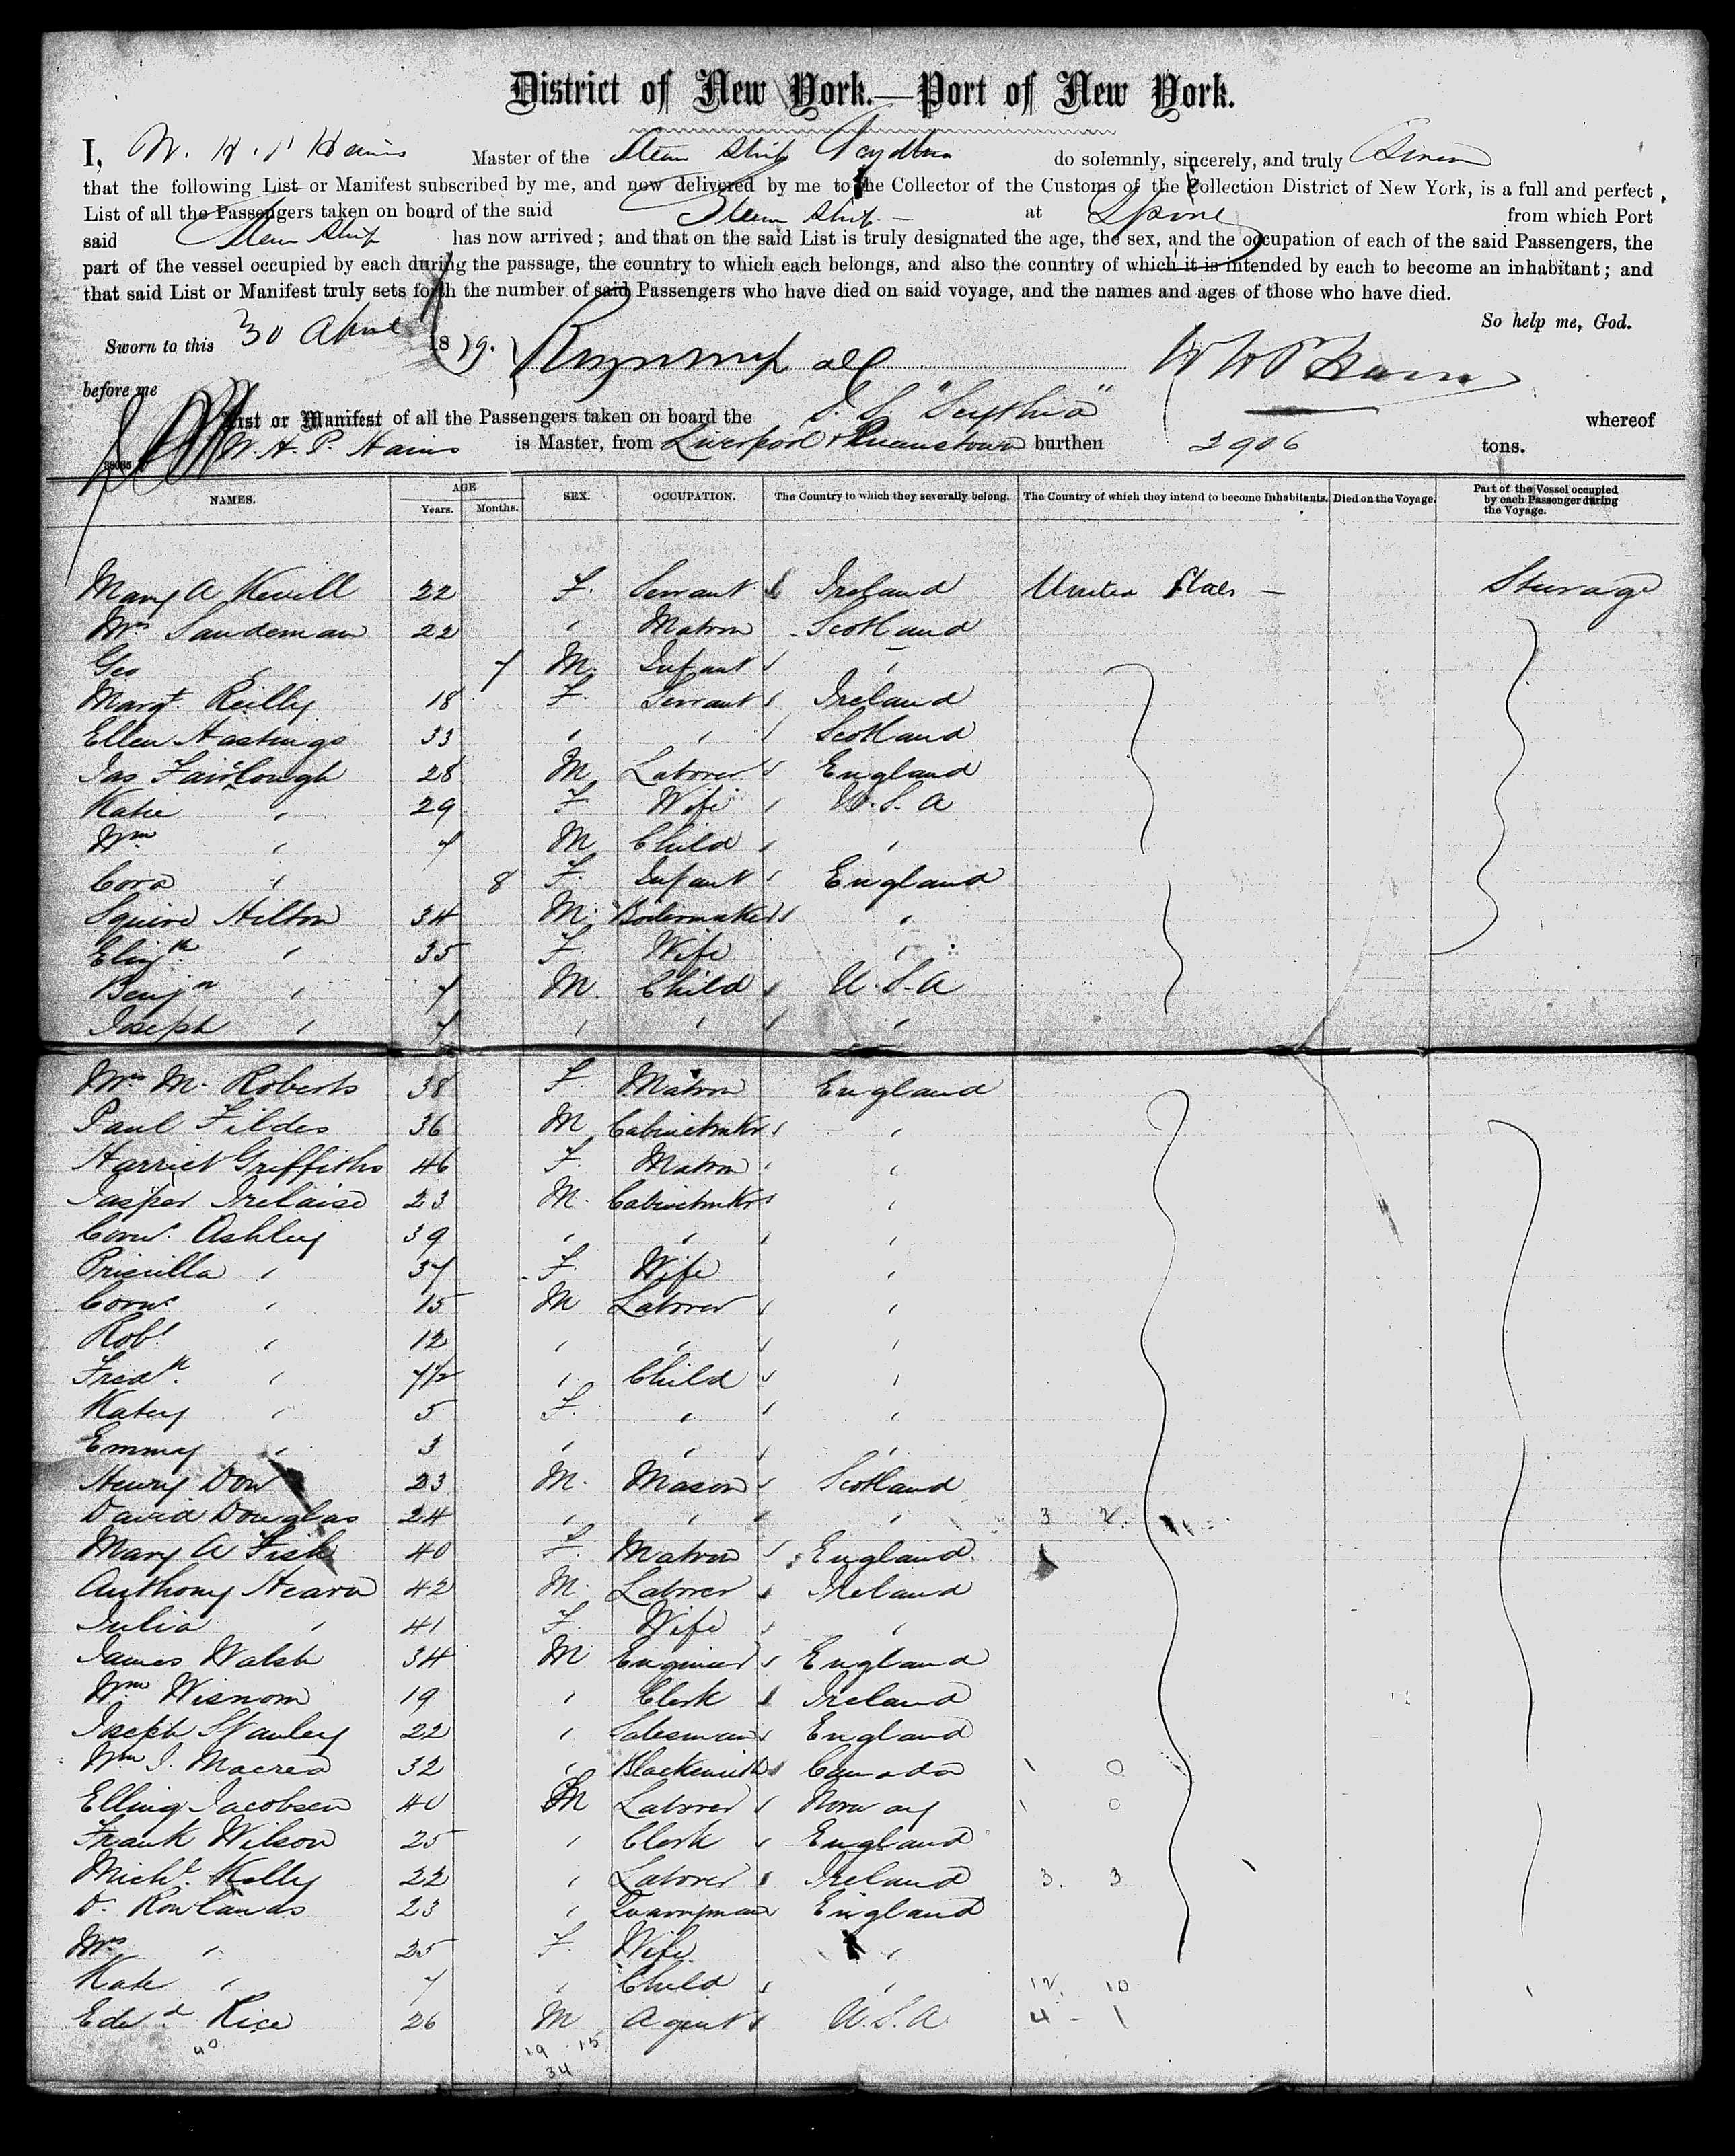 District of New York.—Port of New York.
I, W. H. P. Hains Master of the Steam Ship Scythia do solemnly, sincerely, and truly Swear
that the following List or Manifest subscribed by me, and now delivered by me to the Collector of the Customs of the Collection District of New York, is a full and perfect
List of all the Passengers taken on board of the said Steam Ship at Lpool from which Port
said Steam Ship has now arrived; and that on the said List is truly designated the age, the sex, and the occupation of each of the said Passengers, the
part of the vessel occupied by each during the passage, the country to which each belongs, and also the country of which it is intended by each to become an inhabitant; and
that said List or Manifest truly sets forth the number of said Passengers who have died on said voyage, and the names and ages of those who have died.
So help me, God.
Sworn to this 30 April 1879.
before me
List or Manifest of all the Passengers taken on board the S. S. "Scythia" whereof
W. H. P. Hains is Master, from Liverpool & Queenstown burthen 2906 tons.
NAMES. AGE Years. Months. SEX. OCCUPATION. The Country to which they severally belong. The Country of which they intend to become Inhabitants. Died on the Voyage. Part of the Vessel occupied by each Passenger during the Voyage.
Mary A Kevill 22 F. Servant Ireland United States — Steerage
Mrs Sandeman 22 " Matron Scotland
Geo " 7 M. Infant "
Margt Reilly 18 F. Servant Ireland
Ellen Hastings 33 " " Scotland
Jas Fairclough 28 M Laborer England
Katie " 29 F. Wife U.S.A
Wm " 7 M Child "
Cora " 8 F. Infant England
Squire Hilton 34 M. Boilermaker "
Elizth " 35 F. Wife "
Benjn " 7 M. Child U.S.A
Joseph " 7 " " "
Mrs M. Roberts 38 F Matron England
Paul Fildes 36 M Cabinetmkr "
Harriet Griffiths 46 F. Matron "
Jasper 23 M. Cabinetmkr "
Corns. Ashley 39 " " "
Priscilla " 37 F. Wife "
Corns. " 15 M Laborer "
Robt " 12 " " "
Fredk. " 7½ " Child "
Katey " 5 F. " "
Emmy " 3 " " "
Henry Dow 23 M. Mason Scotland
David Douglas 24 " " " 3 2
Mary A Fish 40 F. Matron England
Anthony Heara 42 M. Laborer Ireland
Julia " 41 F. Wife "
James Walsh 34 M Engineer England
Wm Wisnom 19 " Clerk Ireland
Joseph Stanley 22 " Salesman England
Wm J. Macrea 32 " Blacksmith Canada 1 0
Elling Jacobsen 40 M Laborer Norway 1 0
Frank Wilson 25 " Clerk England
Michl. Kelly 22 " Laborer Ireland 3. 3
D. Rowlands 23 " Quarryman England
Mrs " 25 F. Wife "
Kate " 7 " Child " 12. 10
Edwd Rice 26 M Agent U.S.A. 4 - 1
40 19 15
34